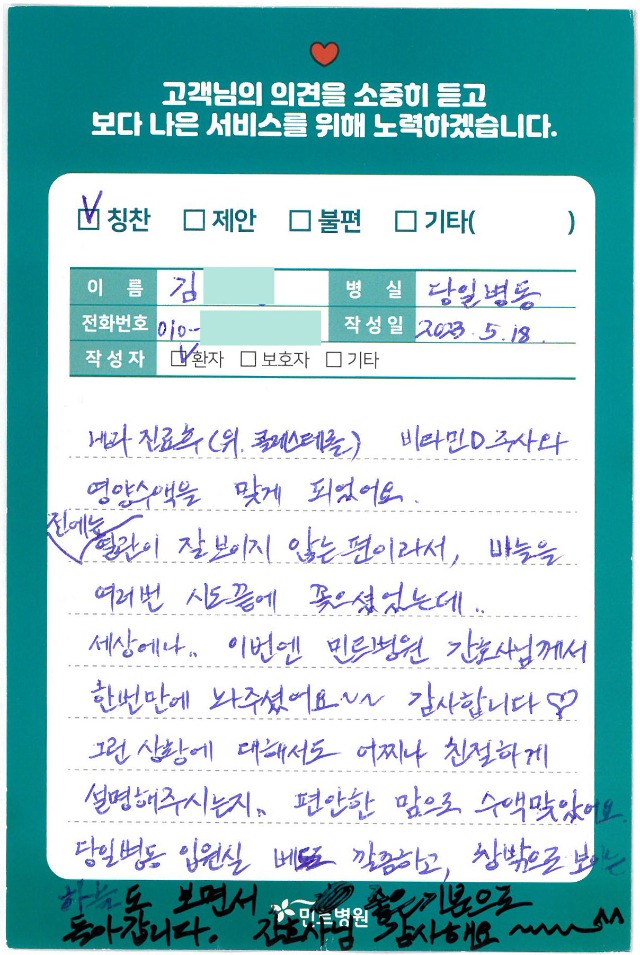 고객님의 의견을 소중히 듣고
보다 나은 서비스를 위해 노력하겠습니다.
V 칭찬 □ 제안 □ 불편 □ 기타( )
이 름 김 병 실 당일병동
전화번호 010- 작성일 2023. 5. 18.
작성자 V 환자 □ 보호자 □ 기타
내과 진료후(위. 콜레스테롤) 비타민D 주사와
영양수액을 맞게 되었어요.
전에는
혈관이 잘 보이지 않는 편이라서, 바늘을
여러번 시도끝에 꽂으셨었는데..
세상에나.. 이번엔 민트병원 간호사님께서
한번만에 놔주셨어요~~ 감사합니다♡
그런 상황에 대해서도 어찌나 친절하게
설명해주시는지.. 편안한 맘으로 수액맞았어요.
당일병동 입원실 깔끔하고, 창밖으로 보이는
하늘도 보면서 좋은기분으로
민트병원
돌아갑니다. 간호사님 감사해요 ~~~^^